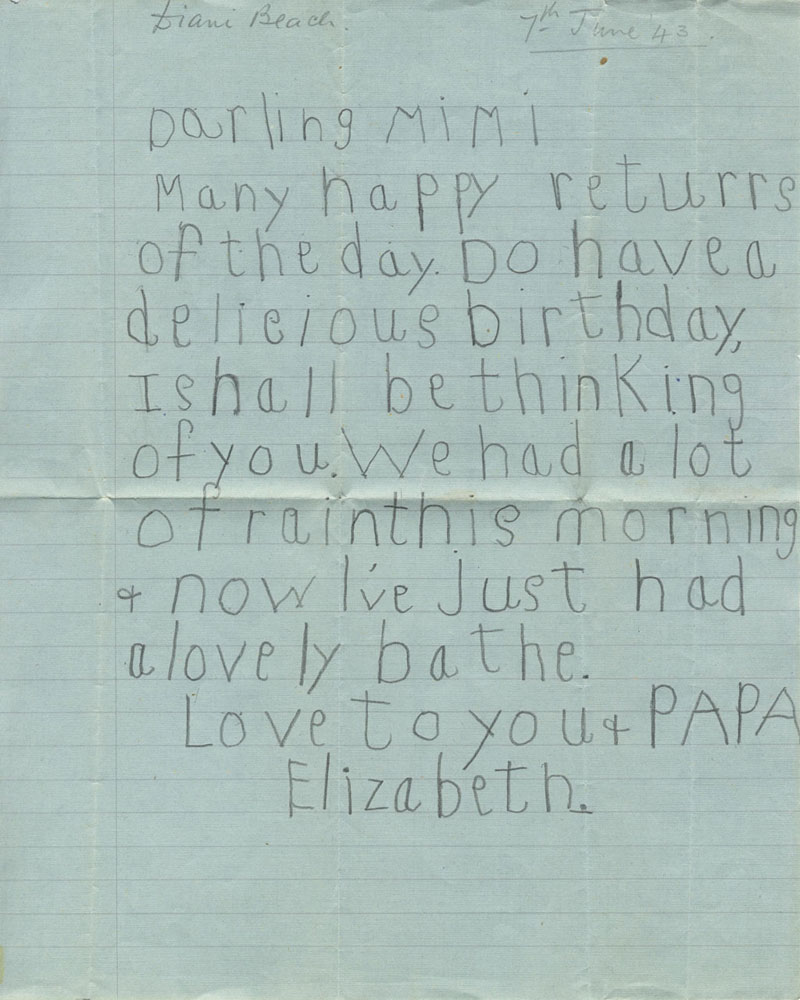 Diani Beach. 7th June 43.
Darling MiMi
Many happy returrs
of the day. Do have a
delicious birthday,
I shall be thinking
of you. We had a lot
of rain this morning
& now I've just had
a lovely bathe.
Love to you & PAPA
Elizabeth.